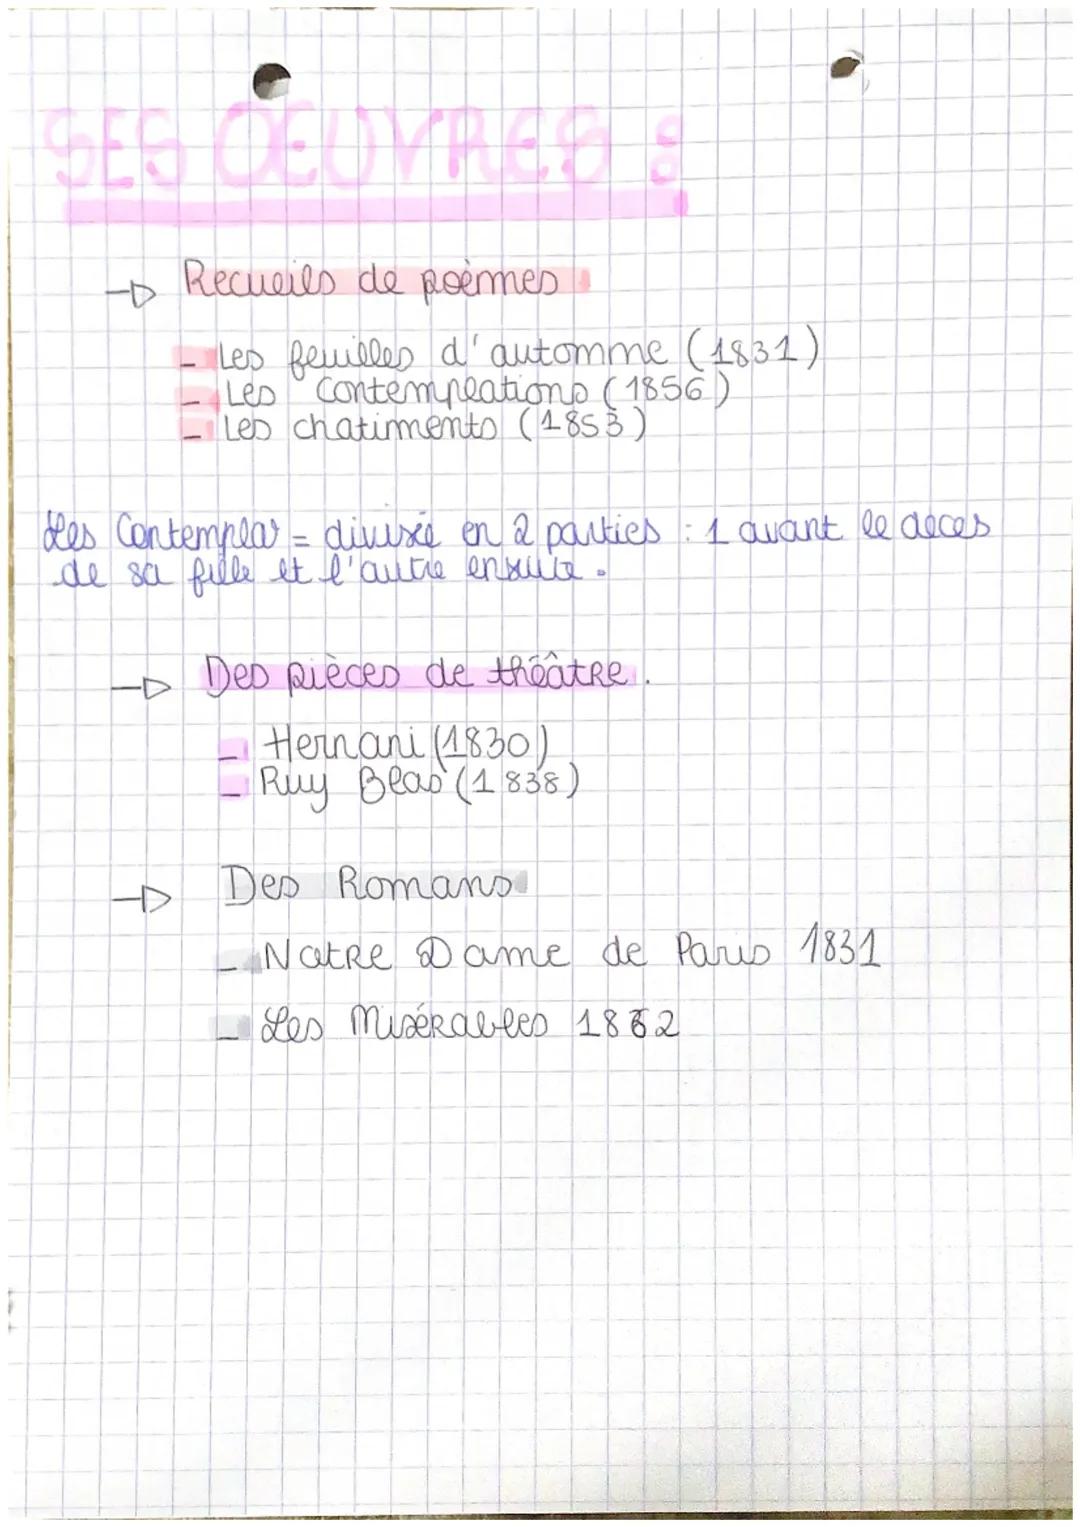 SES OEUVRES :
→ Recueils de poèmes :
- Les feuilles d'automne (1831)
- Les Contemplations (1856)
- Les chatiments (1853)
Les Contempla° = divisé en 2 parties : 1 avant le décès
de sa fille et l'autre ensuite.
→ Des pièces de théâtre.
- Hernani (1830)
- Ruy Blas (1838)
→ Des Romans
- Notre Dame de Paris 1831
- Les Misérables 1862